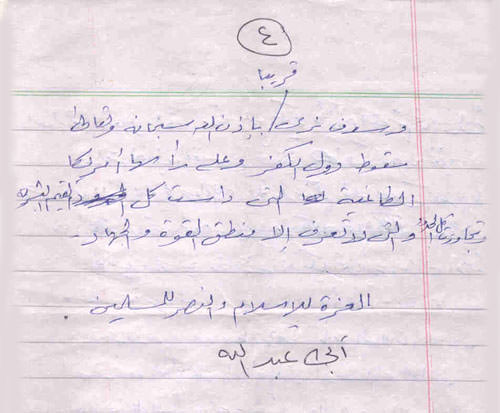 ٤
قريبا
وسوف نرى / بإذن الله سبحانه وتعالى
سقوط دول الكفر وعلى رأسها أمريكا
الطاغية التي داست كل القيم البشرية
وتجاوزت كل الحدود والتي لا تعرف إلا منطق القوة والجهاد.
العزة للإسلام والنصر للمسلمين
أبي عبد الله